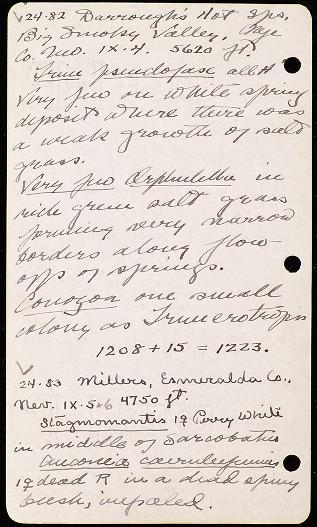 24.82 Darrough's Hot Sps.
Big Smoky Valley, Nye
Co. Nev. IX.4. 5620 ft.
Trim. pseudofasc all A
Very few on white spring
deposits where there was
a weak growth of salt
grass.
Very few Orphulella in
rich green salt grass
forming very narrow
borders along flow-
offs of springs.
Conozoa one small
colony as Trimerotropis
1208 + 15 = 1223.
24.83 Millers, Esmeralda Co.,
Nev. IX.5+6 4750 ft.
Stagmomantis 1♀ Pervy White
in middle of Sarcobatus
Anconia caeruleipennis
1♀ dead R in a dead spiny
bush, impaled.